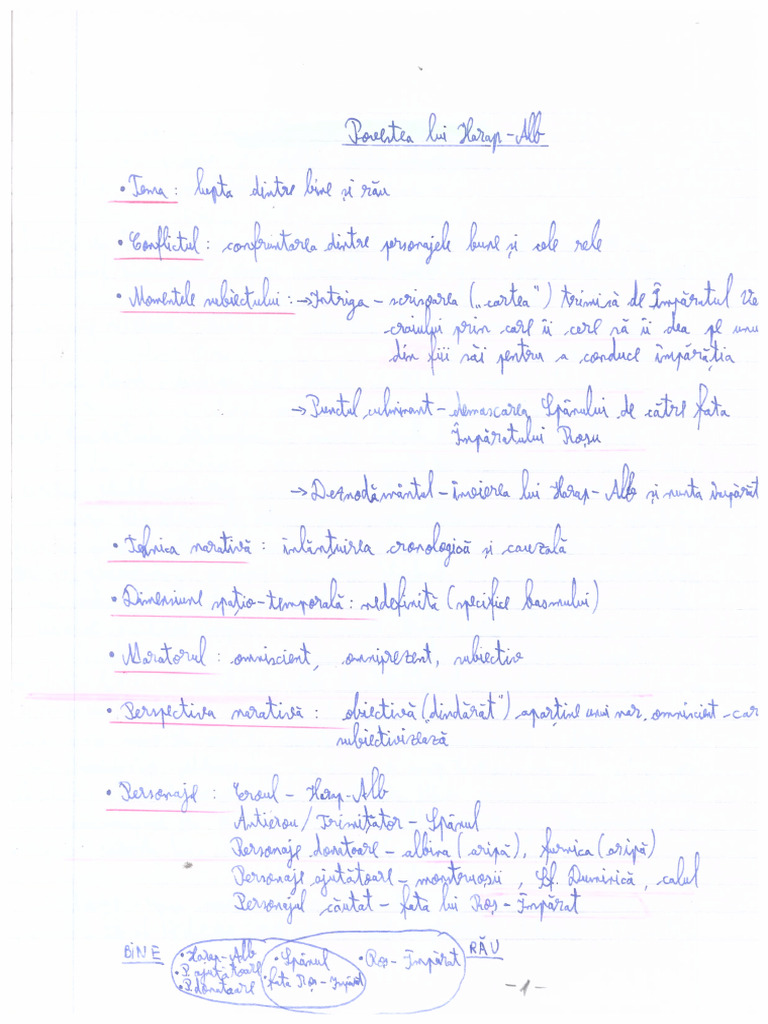 Povestea lui Harap-Alb
• Tema : lupta dintre bine și rău
• Conflictul : confruntarea dintre personajele bune și cele rele
• Momentele subiectului : → Intriga – scrisoarea („cartea") trimisă de Împăratul Ve
craiului prin care îi cere să îi dea pe unu
din fiii săi pentru a conduce împărăția
→ Punctul culminant – demascarea Spânului de către fata
Împăratului Roșu
→ Deznodământul – învierea lui Harap-Alb și nunta împărăt
• Tehnica narativă : înlănțuirea cronologică și cauzală
• Dimensiune spațio-temporală : nedefinită (specifice basmului)
• Naratorul : omniscient, omniprezent, subiectiv
• Perspectiva narativă : obiectivă („dindărăt") aparține unui nar. omniscient – car
subiectivizează
• Personaje : Eroul – Harap-Alb
Antierou / Trimițător – Spânul
Personaje donatoare – albina (aripă), furnica (aripă)
Personaje ajutătoare – monstruoșii, Sf. Duminică, calul
Personajul căutat – fata lui Roș-Împărat
BINE • Harap-Alb • Spânul • Roș-Împărat RĂU
• P. ajutătoare • fata Roș-Împărat
• P. donatoare
-1-